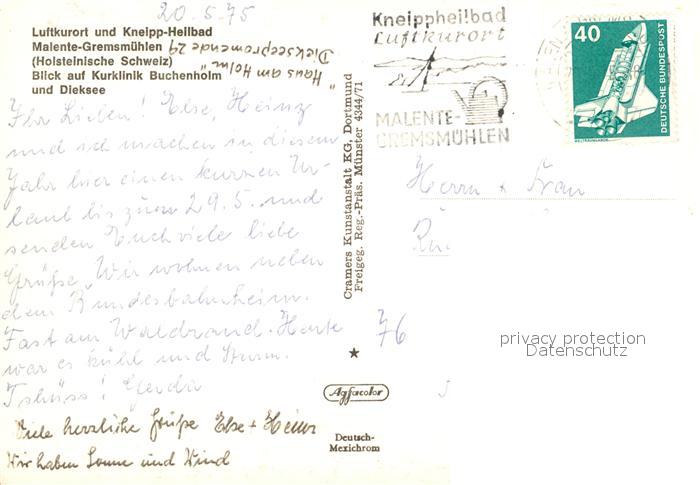 20.5.75
Luftkurort und Kneipp-Heilbad
Malente-Gremsmühlen
(Holsteinische Schweiz)
Blick auf Kurklinik Buchenholm
und Dieksee
"Haus am Holm"
Diekseepromenade 29
Ihr Lieben! Else, Heinz
und ich machen in diesem
Jahr hier einen kurzen Ur-
laub bis zum 29.5. und
senden Euch viele liebe
Grüße. Wir wohnen neben
dem Bundesbahnheim.
Fast am Waldrand. Heute
war es kühl und Sturm.
Tschüss! Gerda
Viele herzliche Grüße Else + Heinz
Wir haben Sonne und Wind
Cramers Kunstanstalt KG, Dortmund
Freigeg. Reg.-Präs. Münster 4344/71
Agfacolor
Deutsch-
Mexichrom
Kneippheilbad
Luftkurort
MALENTE-
GREMSMÜHLEN
40
DEUTSCHE BUNDESPOST
WELTRAUMLABOR
Herrn + Frau
76
privacy protection
Datenschutz